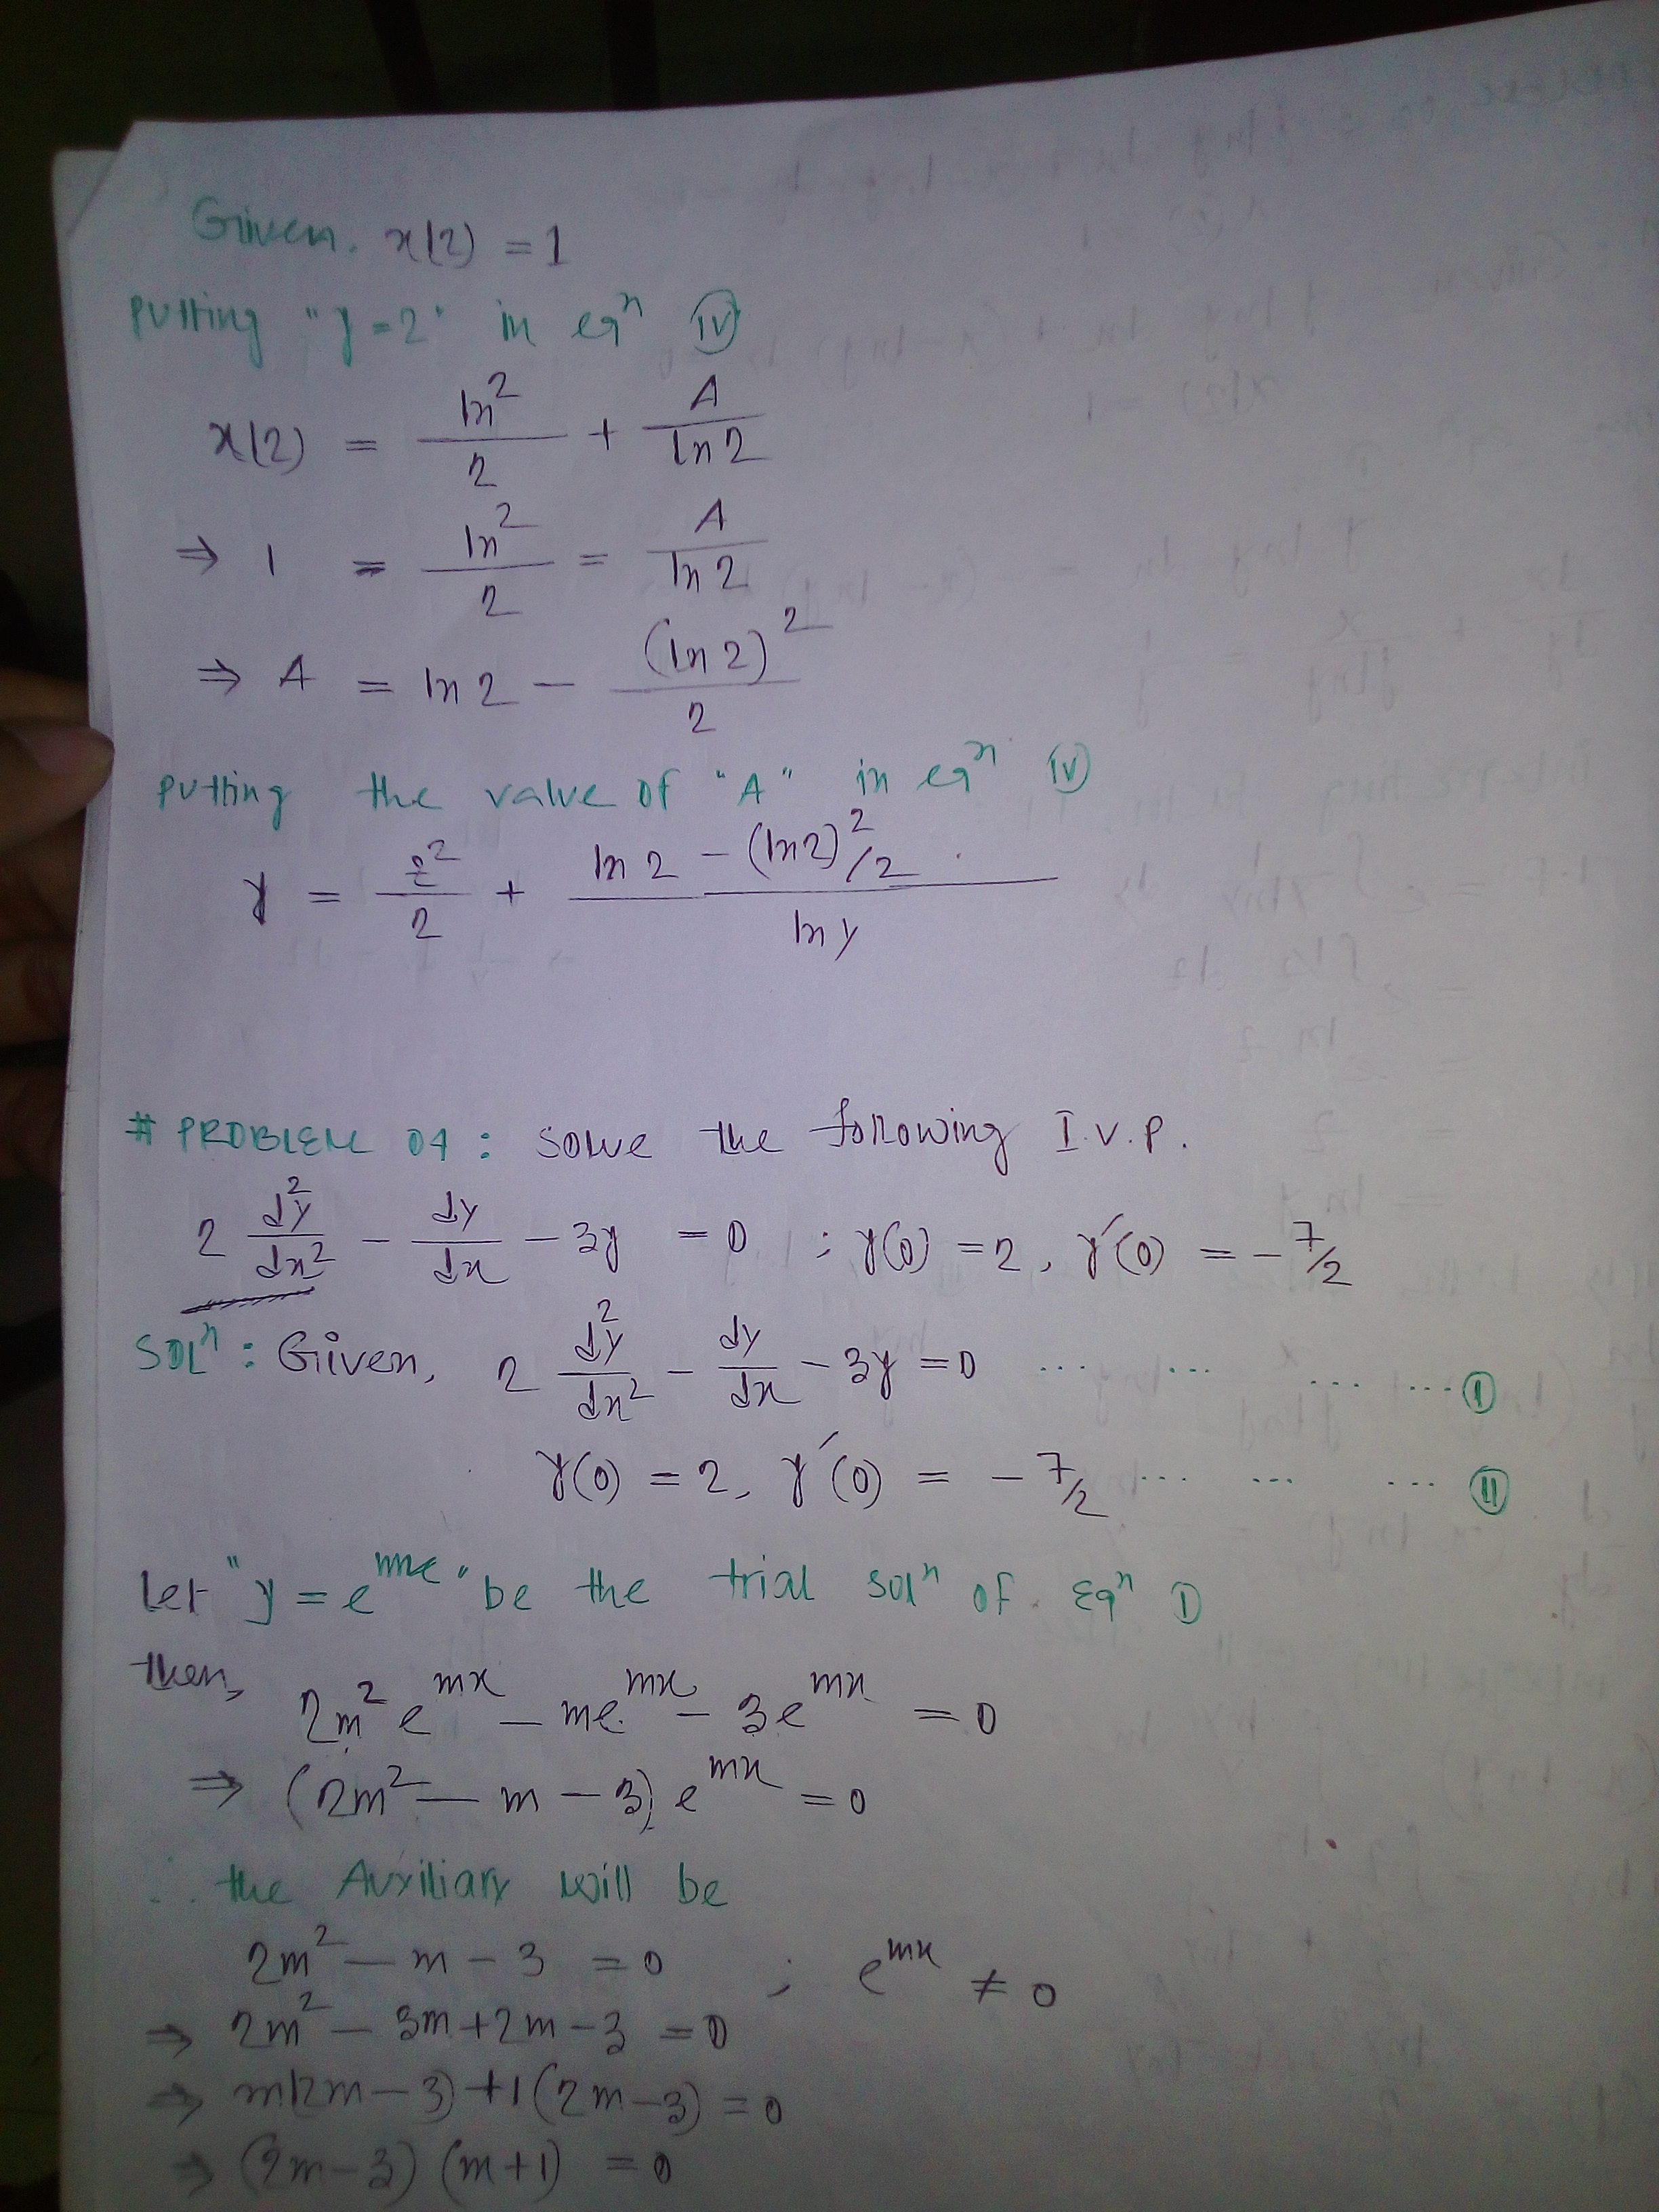 Given. x(2) = 1
Putting "y=2" in eqⁿ (IV)
x(2) = ln²/2 + A/ln 2
⇒ 1 = ln²/2 = A/ln 2
⇒ A = ln 2 − (ln 2)²/2
Putting the value of "A" in eqⁿ (IV)
y = z²/2 + (ln 2 − (ln 2)²/2)/ln y
# PROBLEM 04 : Solve the following I.V.P.
2 d²y/dx² − dy/dx − 3y = 0 ; y(0) = 2, y′(0) = −7/2
SOLⁿ : Given, 2 d²y/dx² − dy/dx − 3y = 0 ... ... ... ... (I)
y(0) = 2, y′(0) = −7/2 ... ... ... (II)
Let "y = e^mx" be the trial solⁿ of Eqⁿ (I)
then,
2m² e^mx − me^mx − 3e^mx = 0
⇒ (2m² − m − 3) e^mx = 0
∴ the Auxiliary will be
2m² − m − 3 = 0 ; e^mx ≠ 0
⇒ 2m² − 3m + 2m − 3 = 0
⇒ m(2m − 3) + 1(2m − 3) = 0
⇒ (2m − 3) (m + 1) = 0